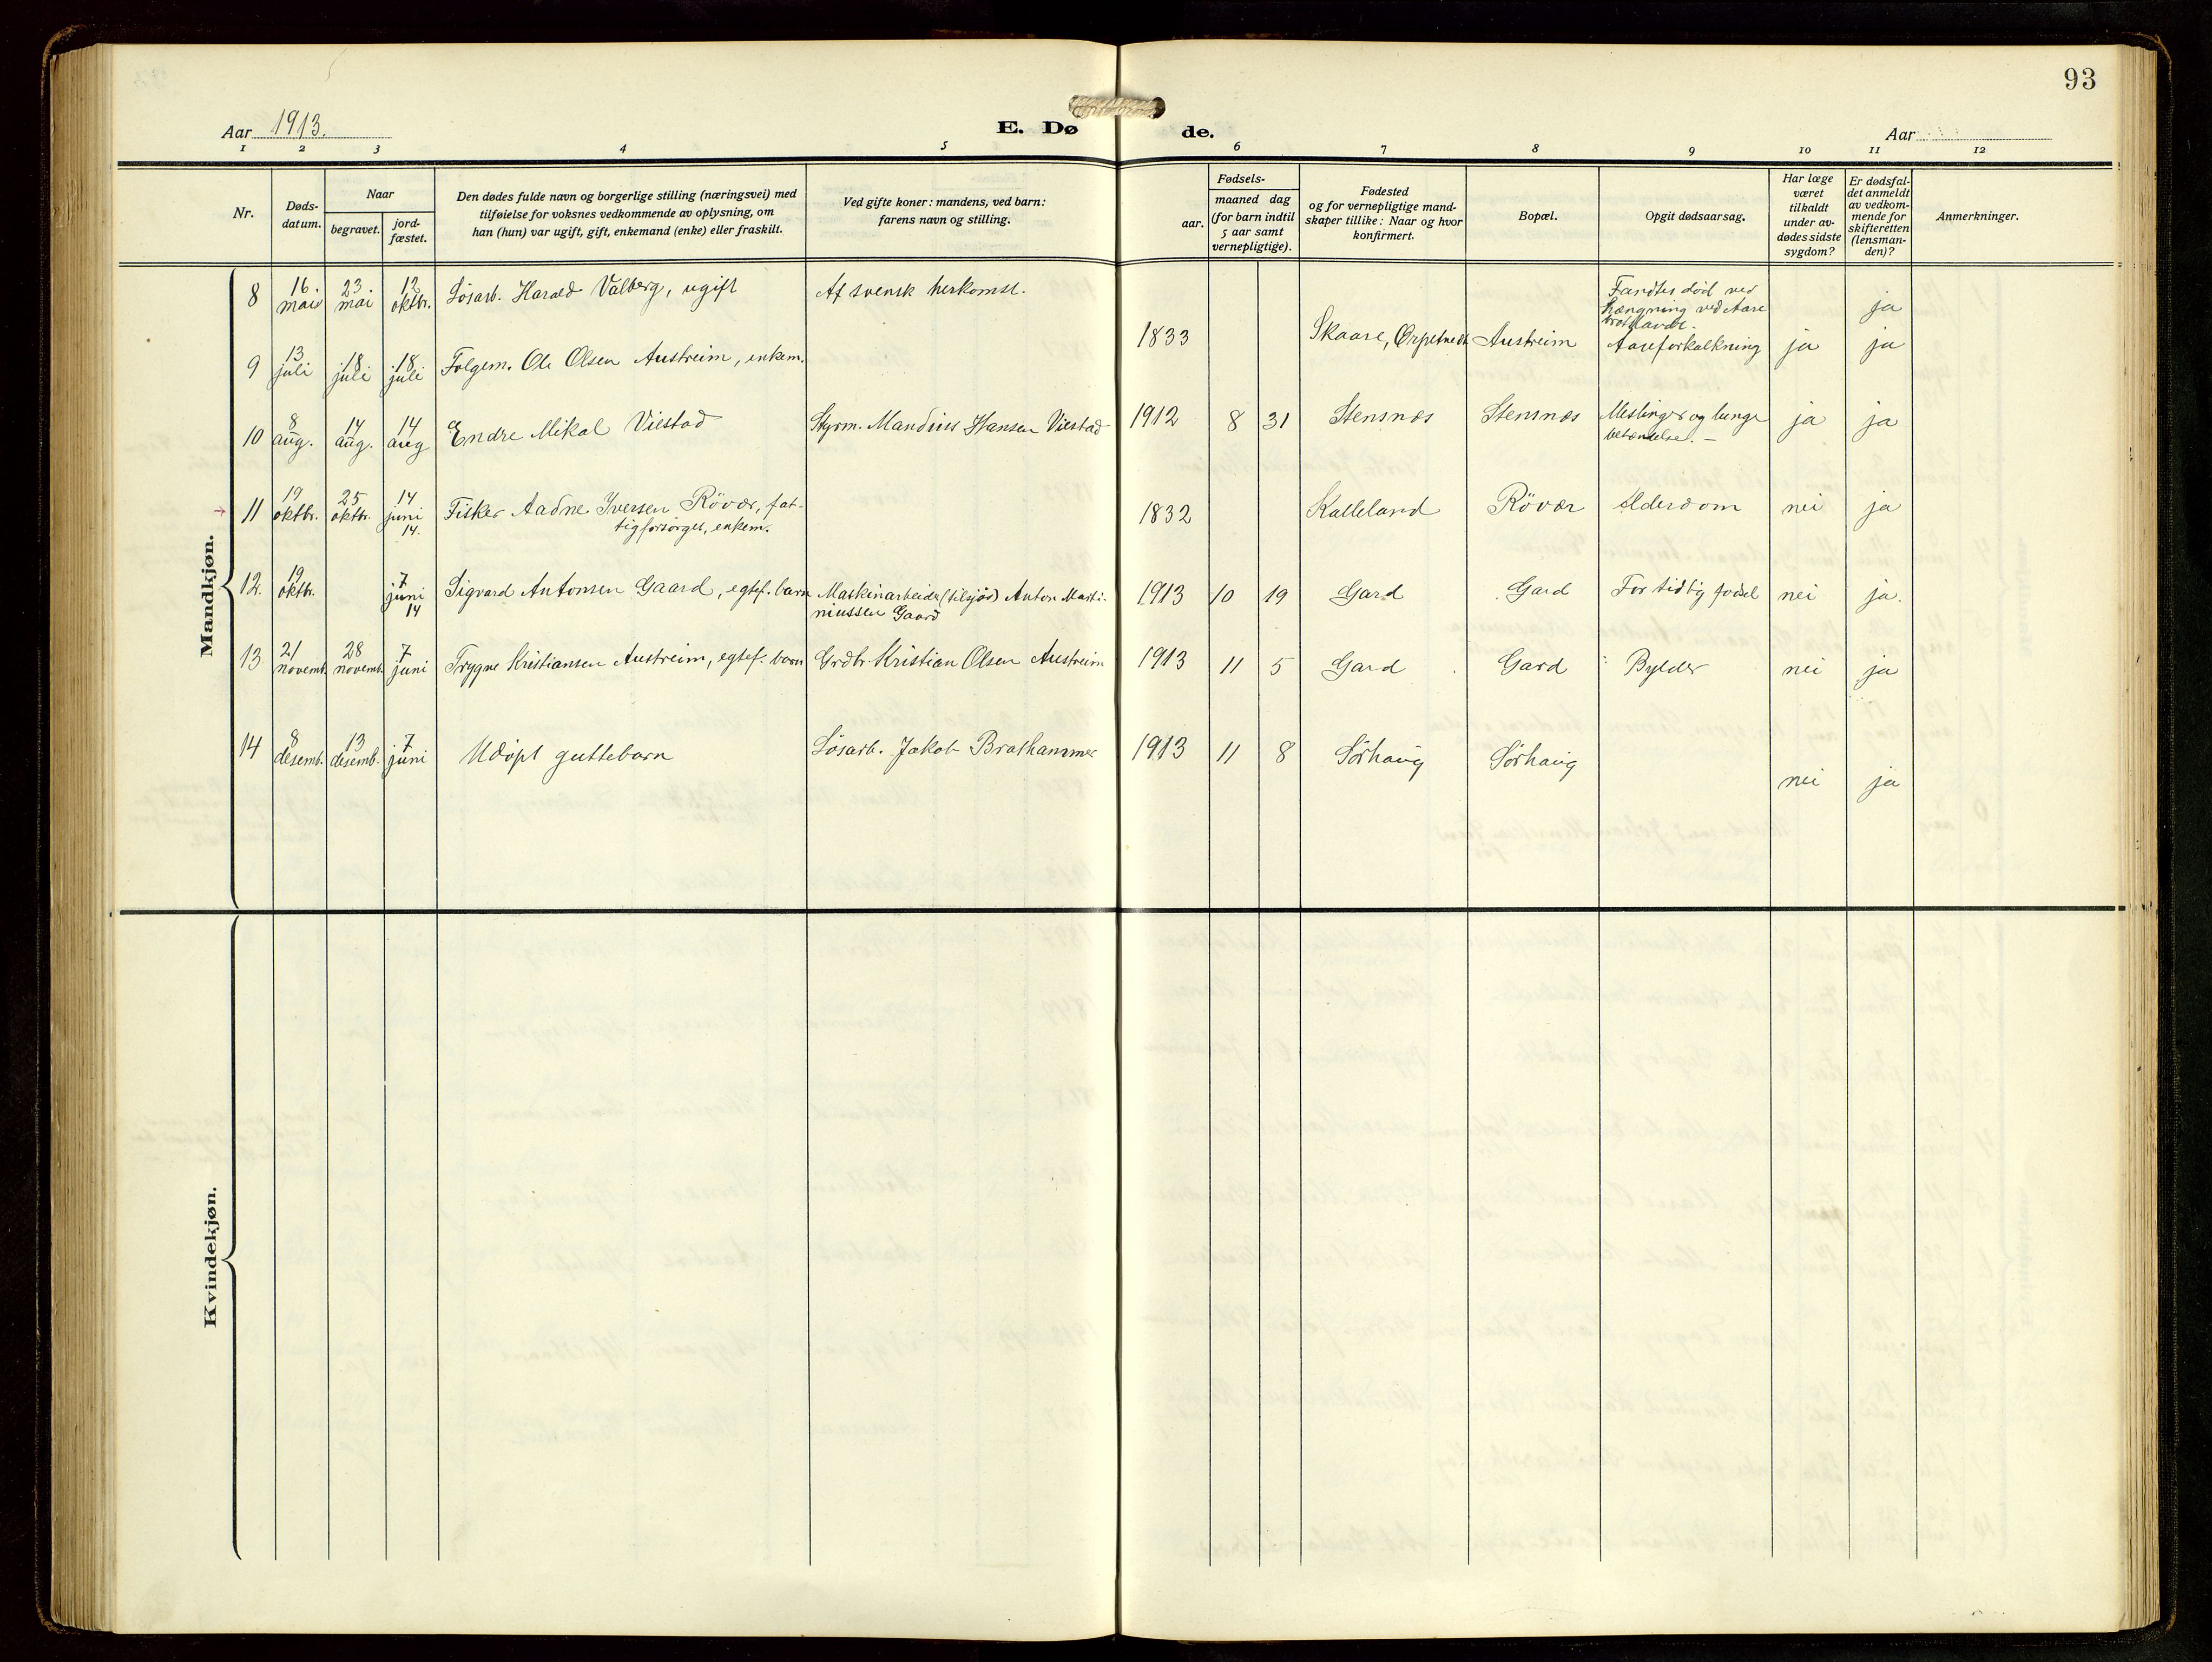 93
Aar 1913.
E. Dø
de.
Aar
1 2 3 4 5 6 7 8 9 10 11 12
Nr.
Døds-
datum.
Naar
begravet.
jord-
fæstet.
Den dødes fulde navn og borgerlige stilling (næringsvei) med
tilføielse for voksnes vedkommende av oplysning, om
han (hun) var ugift, gift, enkemand (enke) eller fraskilt.
Ved gifte koner: mandens, ved barn:
farens navn og stilling.
Fødsels-
aar.
maaned dag
(for barn indtil
5 aar samt
vernepligtige).
Fødested
og for vernepligtige mand-
skaper tillike: Naar og hvor
konfirmert.
Bopæl.
Opgit dødsaarsag.
Har læge
været
tilkaldt
under av-
dødes sidste
sygdom?
Er dødsfal-
det anmeldt
av vedkom-
mende for
skifteretten
(lensman-
den)?
Anmerkninger.
Mandkjøn.
8 16. mai 23. mai 12 oktbr. Løsarb. Harald Valberg, ugift Af svensk herkomst. Fandtes død ved
hængning ved Aare
ja
9 13 juli 18 juli 18 juli Folgem. Ole Olsen Austreim, enkem. 1833 Skaare, Austreim Aareforkalkning ja ja
10 8 aug. 14 aug. 14 aug Endre Mikal Viestad Styrm. Mandius Hansen Viestad 1912 8 31 Stensnæs Stensnæs Meslinger og lunge
betændelse. — ja ja
11 19 oktbr. 25 oktbr. 14 juni 14. Fisker Aadne Iversen Rövær, fat-
tigforsörget, enkem. 1832 Kalleland Rövær Alderdom nei ja
12. 19 oktbr. 7 juni 14 Sigvard Antonsen Gaard, egtef. barn Maskinarbeider (tilsjøs) Anton Marti-
niussen Gaard 1913 10 19 Gard Gard For tidlig fodsel nei ja.
13 21 novemb. 28 novemb. 7 juni Trygve Kristiansen Austreim, egtef. barn Grdbr. Kristian Olsen Austreim 1913 11 5 Gard Gard Bylder nei ja
14 8 desemb. 13 desemb. 7 juni Udöpt guttebarn Løsarb. Jakob Brathammer 1913 11 8 Sörhaug Sörhaug nei ja
Kvindekjøn.